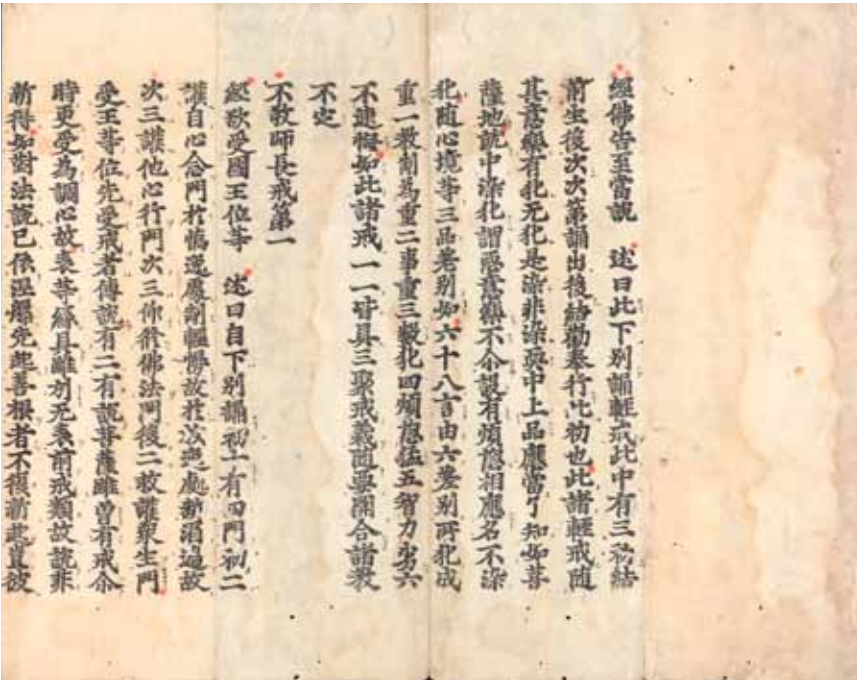 經佛告至當說　述曰此下別誦輕戒此中有三初結
前生後次次第誦出後結勸奉行此初也此諸輕戒随
其意樂有犯无犯是染非染耎中上品應當了知如菩
薩地說中染犯謂惡意樂不介設有煩惱相應名不染
犯随心境等三品差別如六十八言由六差別所犯成
重一教制為重二事重三數犯四煩惱猛五智力劣六
不速擬如此諸戒一一皆具三聚戒義随要開合諸教
不定
不敬師長戒第一
經欲受國王位等　述曰自下別誦初十有四門初二
護自心念門於憍逸處制輕慢故於放逸處祈酒過故
次三護他心行門次三仰修佛法門後二救護衆生門
受王等位先受戒者傳說有二有說菩薩雖曾有戒今
時更受為調心故表等緣具雖別无表前戒類故說非
新得如對法說已依涅槃先起善根者不復新起豈彼